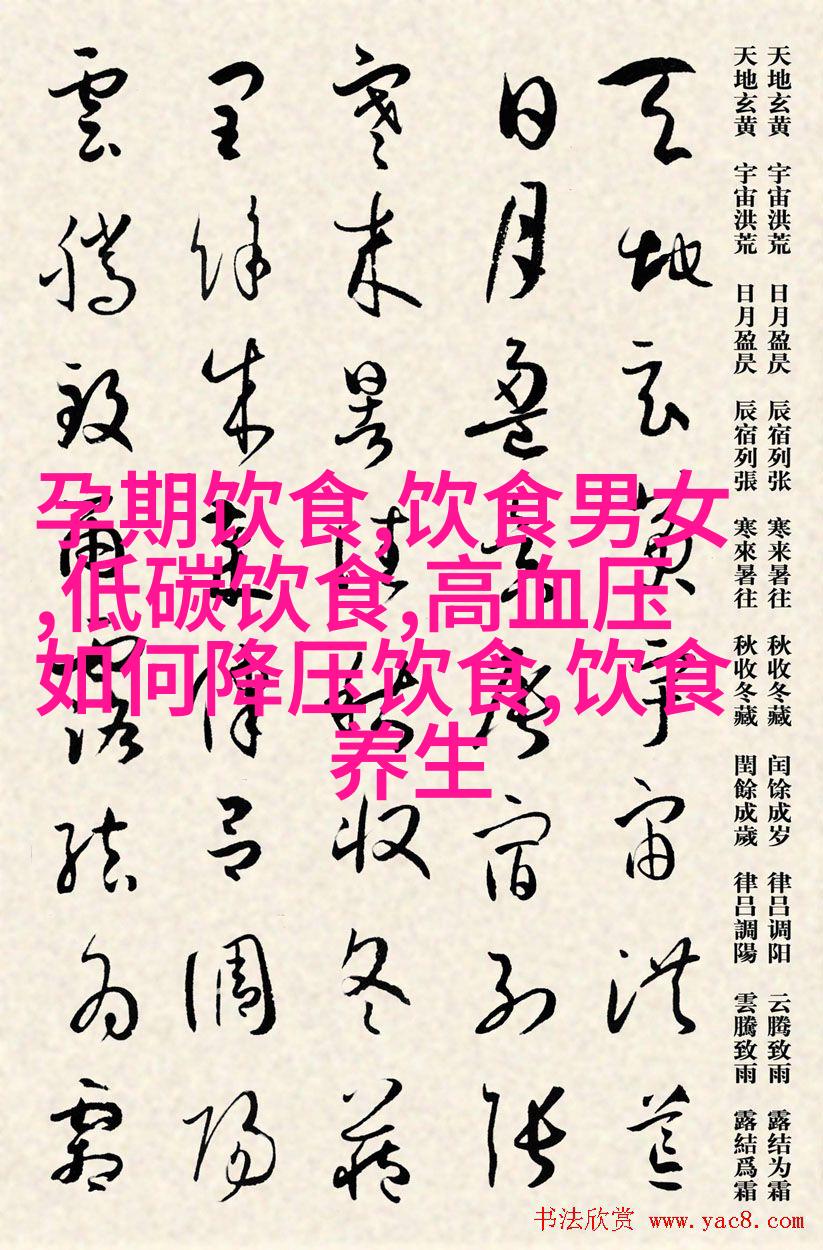 天地玄黄 宇宙洪荒 日月盈昃 辰宿列张 寒来暑往 秋收冬藏 闰馀成岁 律吕调阳 云腾致雨 露结为霜
天地玄黄 宇宙洪荒 日月盈昃 辰宿列張 寒來暑往 秋收冬藏 閏餘成歲 律吕調陽 雲騰致雨 露結爲霜
天地玄黄宇宙洪荒
日月盈昃辰宿列張
寒来暑往秋收冬藏
閏餘成歲律吕調陽
雲騰致雨露結為霜
孕期饮食,饮食男女
,低碳饮食,高血压
如何降压饮食,饮食
养生
书法欣赏 www.yac8.com